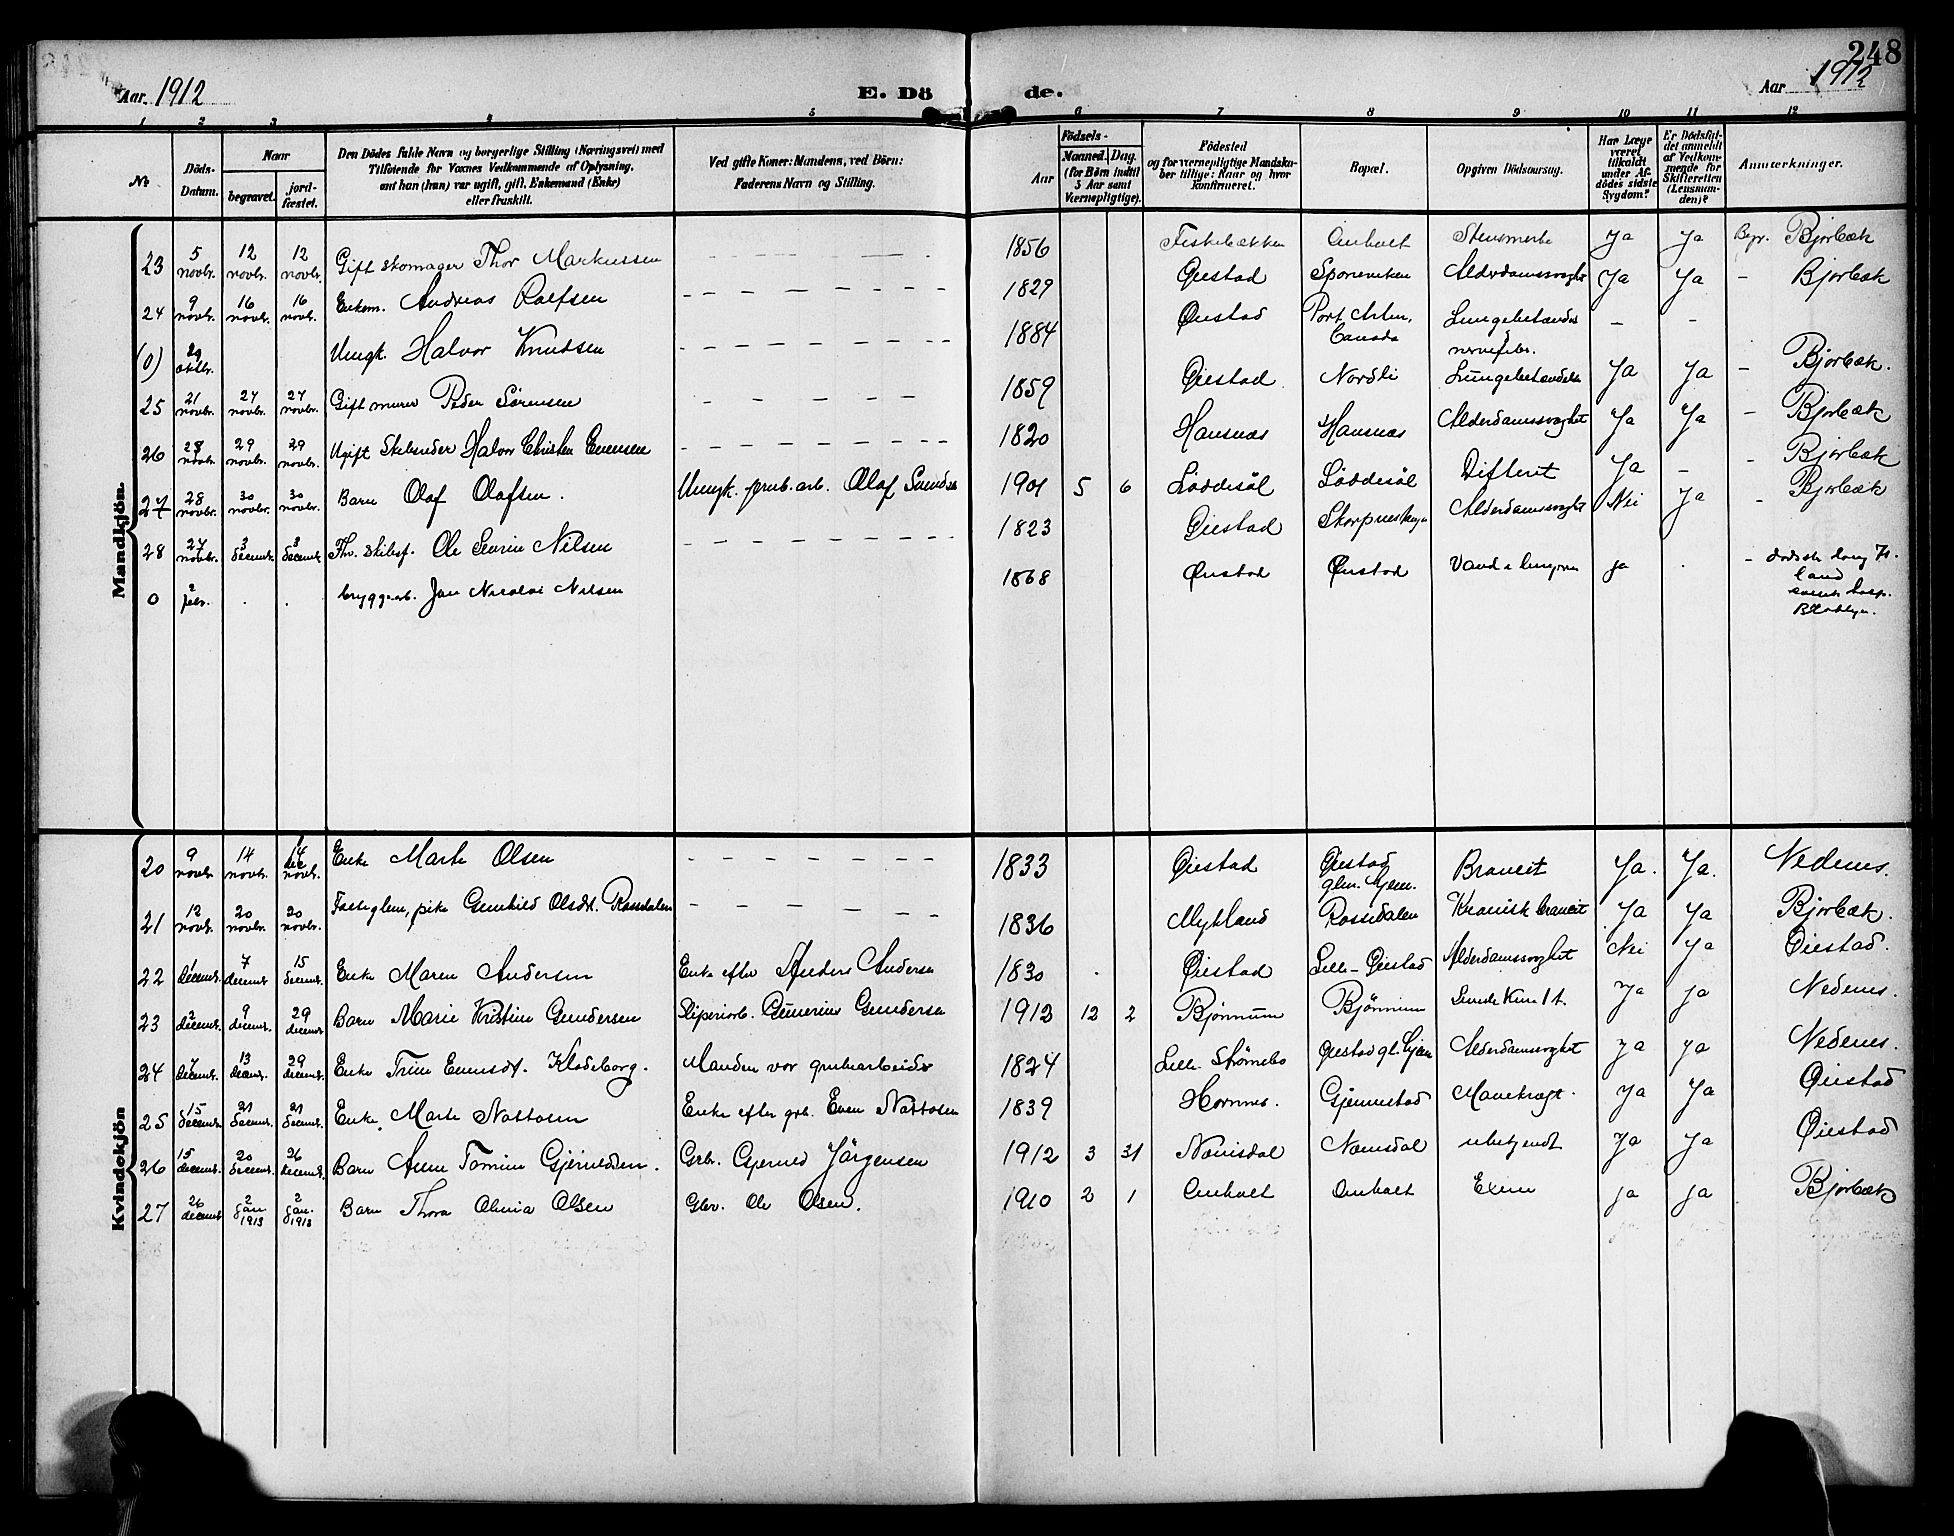 248
Aar 1912
E. Dö de.
Aar 1912
1 2 3 4 5 6 7 8 9 10 11 12
No
Döds-Datum.
Naar
begravet.
jord-fæstet.
Den Dödes fulde Navn og borgerlige Stilling (Næringsvei) med
Tilföiende for Voxnes Vedkommende af Oplysning,
om han (hun) var ugift, gift, Enkemand (Enke)
eller fraskilt.
Ved gifte Koner: Mandens, ved Börn:
Faderens Navn og Stilling.
Födsels-
Aar
Maaned. Dag.
(for Börn indtil
5 Aar samt
Værnepligtige).
Födested
og for værnepligtige Mandska-
ber tillige: Naar og hvor
konfirmeret.
Bopæl.
Opgiven Dödsaarsag.
Har Læge
været
tilkaldt
under Af-
dödes sidste
Sygdom?
Er Dödsfal-
det anmeldt
af Vedkom-
mende for
Skifteretten
(Lensman-
den)?
Anmærkninger.
Mandkjön.
23 5 novbr. 12 novbr. 12 novbr. Gift skomager Thor Markussen 1856 Fiskebækken Omholt Ja Ja Begr. Bjorbæk
24 9 novbr. 16 novbr. 16 novbr. Enkem. Andreas Roefsen 1829 Øiestad Sporeviken Alderdomssvaghet Ja Ja - Bjorbæk
(0) 29 oktbr. Ungk. Halvor Knudsen 1884 Øiestad Port Canada Lungebetændelse - -
25 21 novbr. 27 novbr. 27 novbr. Gift murer Peder Sørensen 1859 Øiestad Nordli Lungebetændelse Ja Ja - Bjorbæk.
26 28 novbr. 29 novbr. 29 novbr. Ugift Halvor Christen Evensen 1820 Hansnæs Hansnæs Alderdomssvaghet Ja Ja - Bjorbæk
27 28 novbr. 30 novbr. 30 novbr. Barn Olaf Olafsen. Ungk. grub.arb. Olaf 1901 5 6 Løddesøl Løddesøl Difterit Ja - - Bjorbæk
28 27 novbr. 3 decembr. 3 decembr. Ole Severin Nilsen 1823 Øiestad Alderdomssvaghet Nei Ja - Bjorbæk
0 2 febr. . . bryggearb. Jan Nicolai Nilsen 1868 Øiestad Øiestad Vand i lungerne ja . - døde Long Island
Brooklyn.
Kvindekjön
20 9 novbr. 14 novbr. 14 novbr. Enke Marte Olsen 1833 Øiestad Øiestad gln. hjem. Broncit Ja. Ja. Nedenes.
21 12 novbr. 20 novbr. 20 novbr. pike Gunhild Olsdt. Rossedalen 1836 Mykland Rossedalen Kronisk broncit Ja Ja Bjorbæk.
22 1 decembr. 7 decembr. 15 decembr. Enke Maren Andersen Enke efter Anders Andersen 1830 Øiestad Lille-Øiestad Alderdomssvaghet Nei Ja Øiestad.
23 2 decembr. 9 decembr. 29 decembr. Barn Marie Kristine Gundersen Sliperiarb. Gunerius Gundersen 1912 12 2 Bjønnum Bjønnum Ja Ja Nedenes.
24 7 decembr. 13 decembr. 29 decembr. Enke Trine Evensdt. Klodeborg. Manden var grubearbeider 1824 Lille Strømsbo Øiestad gl. hjem Alderdomssvaghet Ja Ja Nedenes.
25 15 decembr. 21 decembr. 21 decembr. Enke, Marte Nattosen Enke efter grb. Even Nattosen 1839 Hornnes. Gjennestad Mavekræft. Ja Ja Øiestad
26 15 decembr. 20 decembr. 26 decembr. Barn Anne Tomine Gjeruldsen. Grb. Gjeruld Jörgensen 1912 3 31 Næmsdal Næmsdal ubekjendt Ja Ja Øiestad
27 26 decembr 2 Jan 1913 2 Jan. 1913 Barn Thora Olivia Olsen Gbr. Ole Olsen. 1910 2 1 Omholt Omholt ja ja Bjorbæk